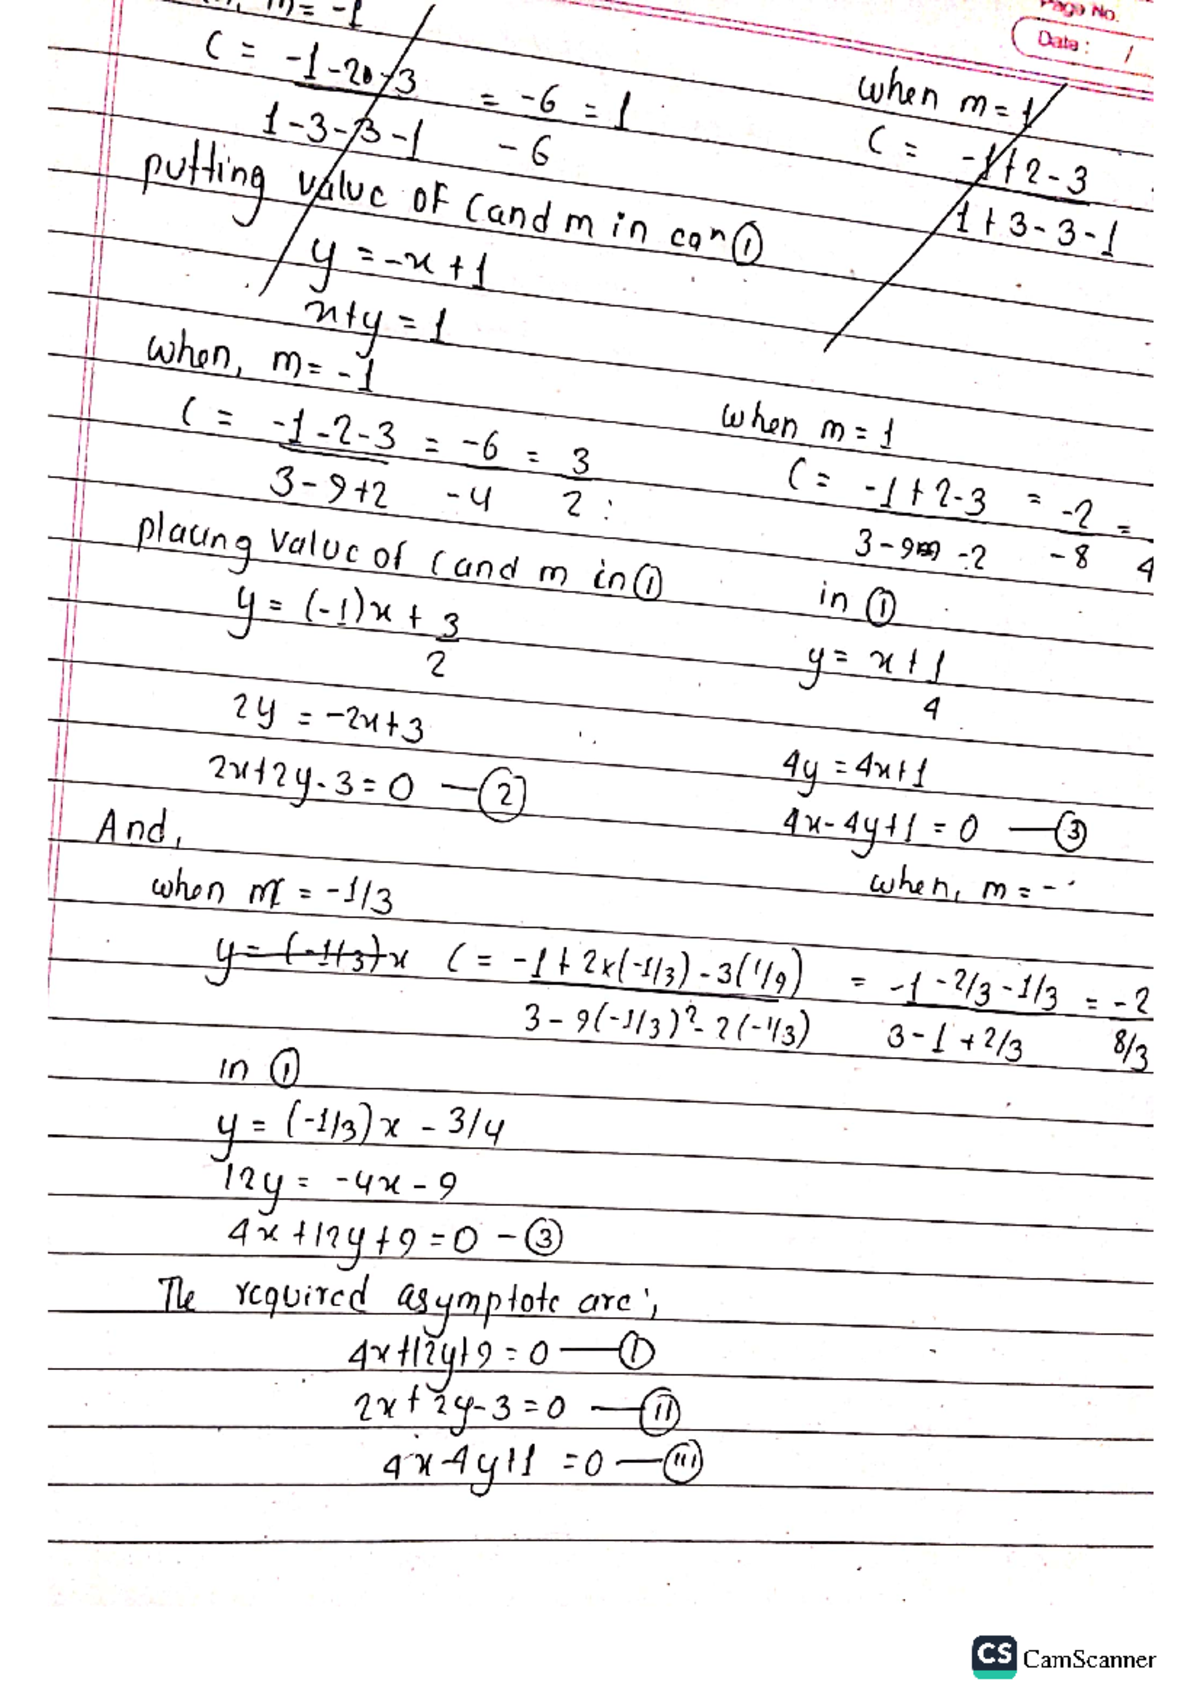 m = -1
Page No.
Date: /
C = -1-20-3 / 1-3-3-1 = -6 / -6 = 1
when m = 1
C = -1+2-3 / 1+3-3-1
putting value of C and m in eqn ①
y = -x + 1
x+y = 1
when, m = -1
C = -1-2-3 / 3-9+2 = -6 / -4 = 3 / 2 :
when m = 1
C = -1+2-3 / 3-9 -2 = -2 / -8 = / 4
placing value of C and m in ①
y = (-1)x + 3/2
2y = -2x+3
2x+2y-3=0 — ②
in ①
y = x + 1/4
4y = 4x+1
4x-4y+1 = 0 — ③
And,
when, m = -
when m = -1/3
y = (-1/3)x C = -1+2x(-1/3)-3(1/9) / 3-9(-1/3)²-2(-1/3) = -1-2/3-1/3 / 3-1+2/3 = -2 / 8/3
in ①
y = (-1/3)x - 3/4
12y = -4x - 9
4x+12y+9=0 - ③
The required asymptote are;
4x+12y+9=0 — ①
2x+2y-3=0 — ⅱ
4x-4y+1=0 — ⅲ
CS CamScanner